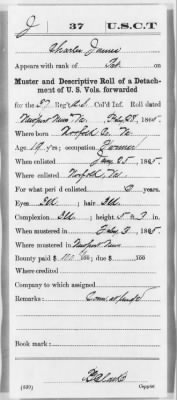 J | 37 | U.S.C.T
Charles James
Appears with rank of Pvt on
Muster and Descriptive Roll of a Detach-
ment of U. S. Vols. forwarded
for the 37 Reg't U.S. Col'd Inf. Roll dated
Newport News Va. Feby 28, 1865.
Where born Norfolk Co. Va.
Age 19 y'rs; occupation Farmer
When enlisted Jany 25, 1865.
Where enlisted Norfolk, Va.
For what period enlisted 3 years.
Eyes Blk; hair Blk
Complexion Blk; height 5 ft. 7 in.
When mustered in Feby 3, 1865
Where mustered in Newport News
Bounty paid $ 100; due $ 100
Where credited
Company to which assigned
Remarks:
Book mark:
(639) Copyist